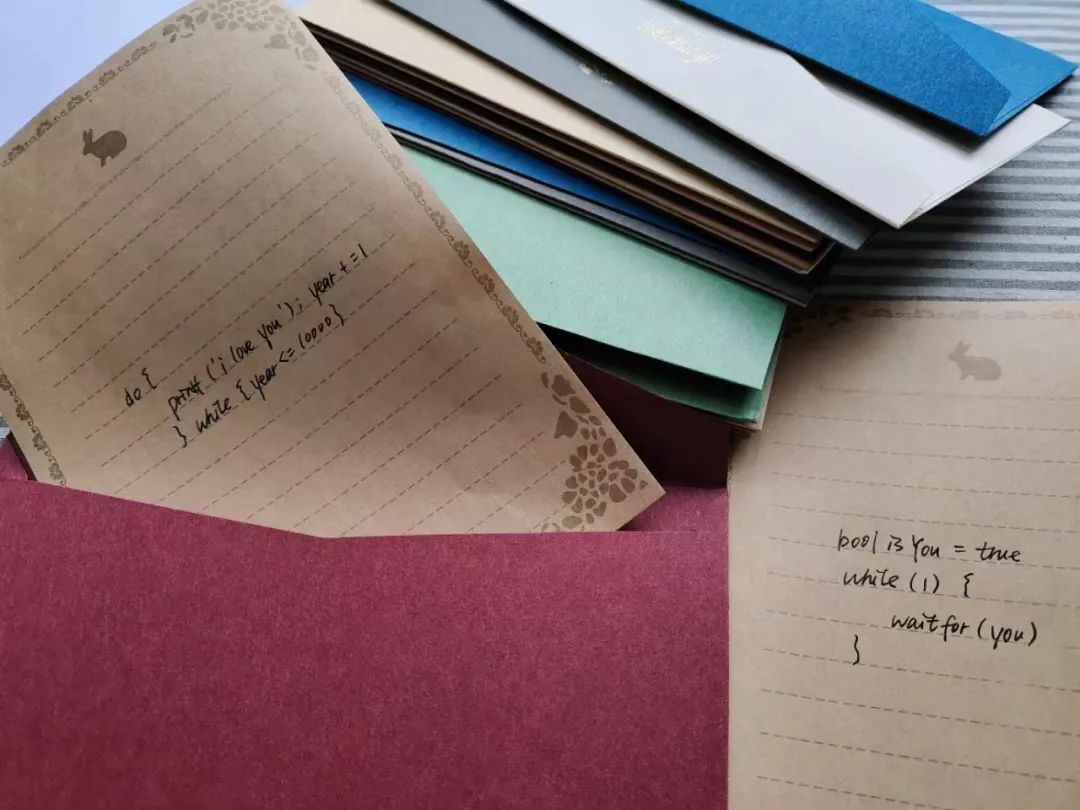 do {
print ('i love you'); year + =1
} while { year <= 10000 }
bool is You = true
while (1) {
wait for (you)
}